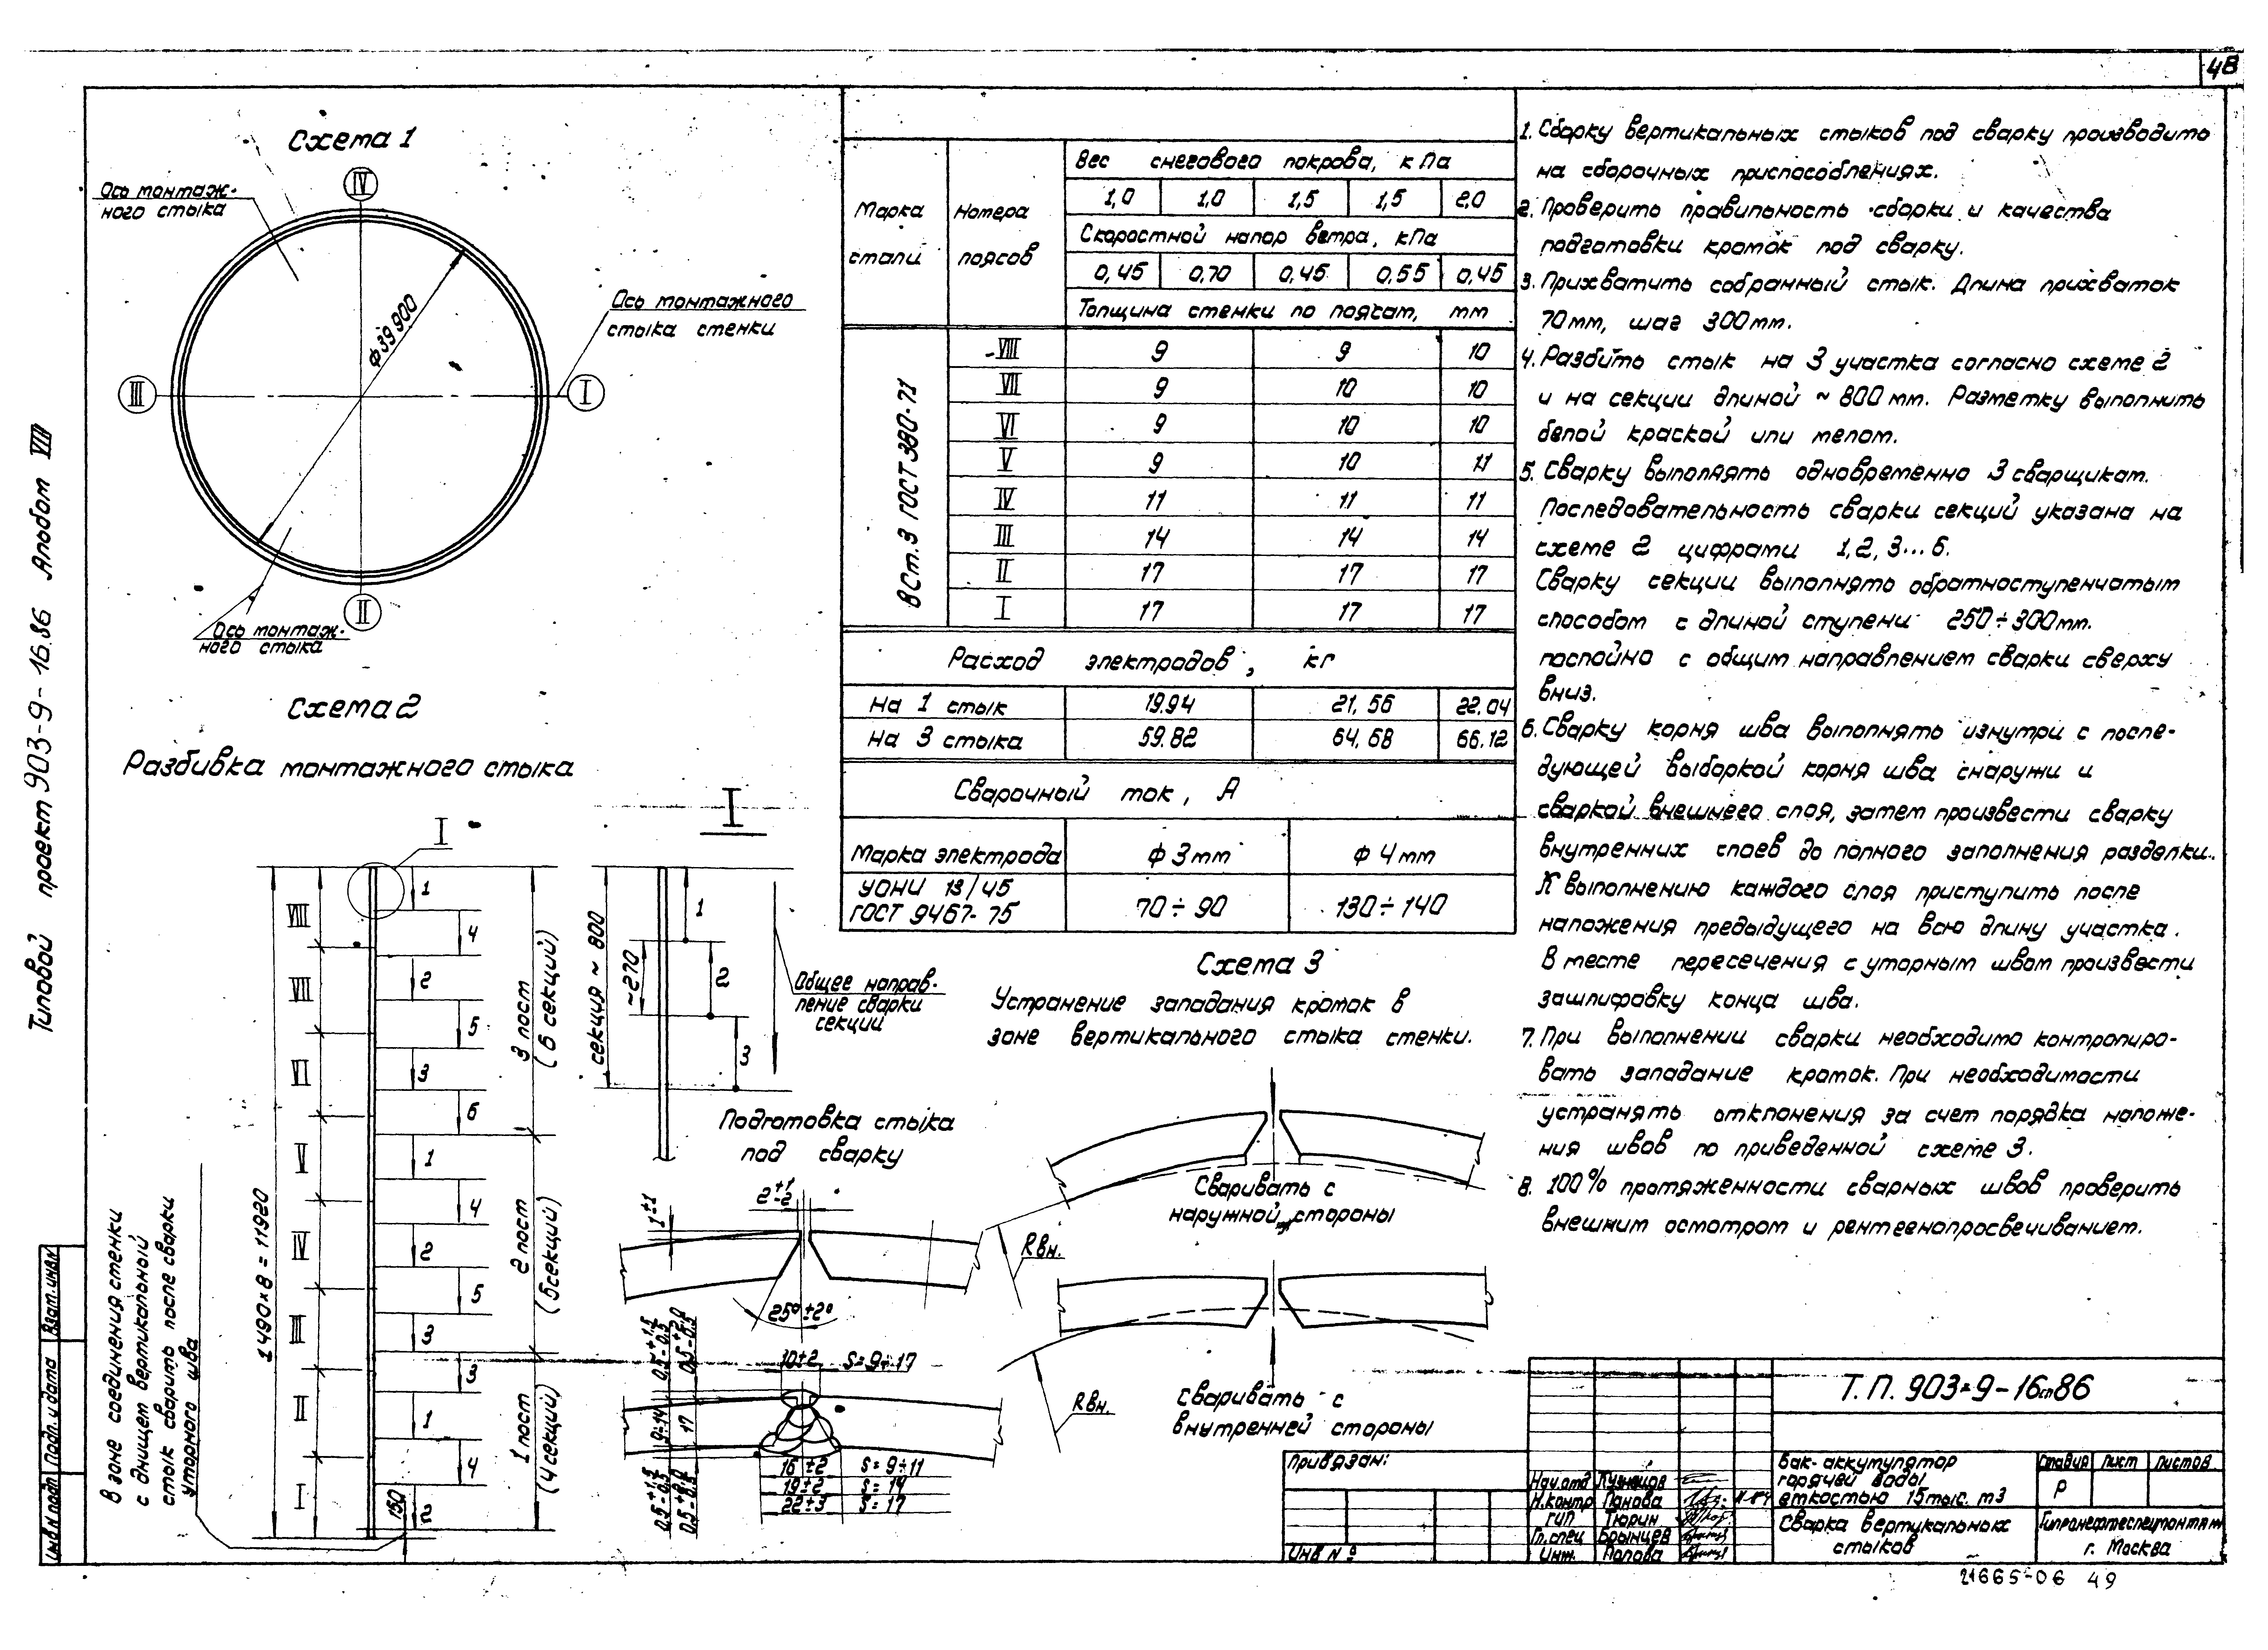 48
Типовой проект 903-9-16.86 Альбом VIII
Схема 1
Ось монтаж-
ного стыка
IV
Ось монтажного
стыка стенки
ф39900
III
I
II
Ось монтаж-
ного стыка
Схема 2
Разбивка монтажного стыка
I
I
VIII
VII
VI
V
IV
III
II
I
1490×8=11920
1
4
2
5
3
6
1
4
2
5
3
3
1
4
2
150
3 пост
(6 секций)
2 пост
(5 секций)
1 пост
(4 секций)
В зоне соединения стенки
с днищем вертикальный
стык сварить после сварки
уторного шва
секция ~ 800
~270
1
2
3
Общее направ-
ление сварки
секции
Марка
стали
Номера
поясов
Вес снегового покрова, кПа
1,0 1,0 1,5 1,5 2.0
Скоростной напор ветра, кПа
0,45 0,70 0,45 0,55 0,45
Толщина стенки по поясам, мм
ВСт.3 ГОСТ 380-71
VIII 9 9 10
VII 9 10 10
VI 9 10 10
V 9 10 11
IV 11 11 11
III 14 14 14
II 17 17 17
I 17 17 17
Расход электродов, кг
На 1 стык 19.94 21,56 22.04
На 3 стыка 59.82 64,68 66.12
Сварочный ток, А
Марка электрода ф 3мм ф 4мм
УОНИ 13/45
ГОСТ 9467-75
70÷90 130÷140
Схема 3
Устранение западания кромок в
зоне вертикального стыка стенки.
Сваривать с
наружной стороны
Rвн.
Сваривать с
внутренней стороны
Rвн.
Подготовка стыка
под сварку
2+1-2
1±1
25°±2°
10±2 S=9÷17
9÷14
17
16±2 S=9÷11
19±2 S=14
22±3 S=17
1. Сборку вертикальных стыков под сварку производить
на сборочных приспособлениях.
2. Проверить правильность сборки и качества
подготовки кромок под сварку.
3. Прихватить собранный стык. Длина прихваток
70мм, шаг 300мм.
4. Разбить стык на 3 участка согласно схеме 2
и на секции длиной ~ 800 мм. Разметку выполнить
белой краской или мелом.
5. Сварку выполнять одновременно 3 сварщикам.
Последовательность сварки секций указана на
схеме 2 цифрами 1,2,3...6.
Сварку секции выполнять обратноступенчатым
способом с длиной ступени 250÷300мм.
послойно с общим направлением сварки сверху
вниз.
6. Сварку корня шва выполнять изнутри с после-
дующей выборкой корня шва снаружи и
сваркой внешнего слоя, затем произвести сварку
внутренних слоев до полного заполнения разделки.
К выполнению каждого слоя приступить после
наложения предыдущего на всю длину участка.
В месте пересечения с уторным швом произвести
зашлифовку конца шва.
7. При выполнении сварки необходимо контролиро-
вать западание кромок. При необходимости
устранять отклонения за счет порядка наложе-
ния швов по приведенной схеме 3.
8. 100% протяженности сварных швов проверить
внешним осмотром и рентгенопросвечиванием.
Взам.инв.N
Подп. и дата
Инв.N подл
Привязан:
Инв N°
Т.П. 903-9-16сп86
Нач.отд Кузнецов
Н.контр Панова
ГИП Тюрин
Гл.спец Брынцев
Инж. Попова
Бак-аккумулятор
горячей воды
емкостью 15тыс. м3
Стадия Лист Листов
Р
Сварка вертикальных
стыков
Гипронефтеспецмонтаж
г. Москва
21665-06 49